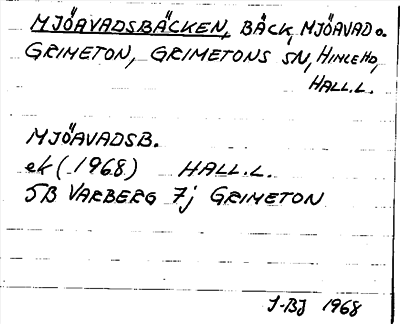 MJÖAVADSBÄCKEN, BÄCK, MJÖAVAD o.
GRIMETON, GRIMETONS SN, HIMLE HD,
HALL.L.
MJÖAVADSB.
ek (1968) HALL.L.
5B VARBERG 7j GRIMETON
J-BJ 1968